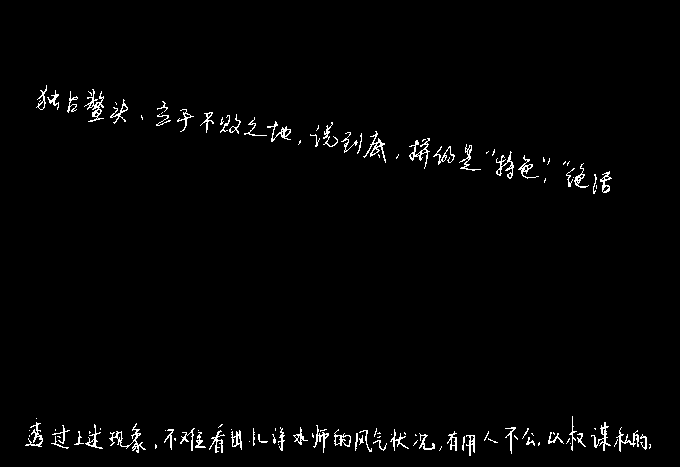 独占鳌头、立于不败之地，说到底，拼的是“特色”、“绝活
透过上述现象，不难看出水师的风气状况，有用人不公，以权谋私的，